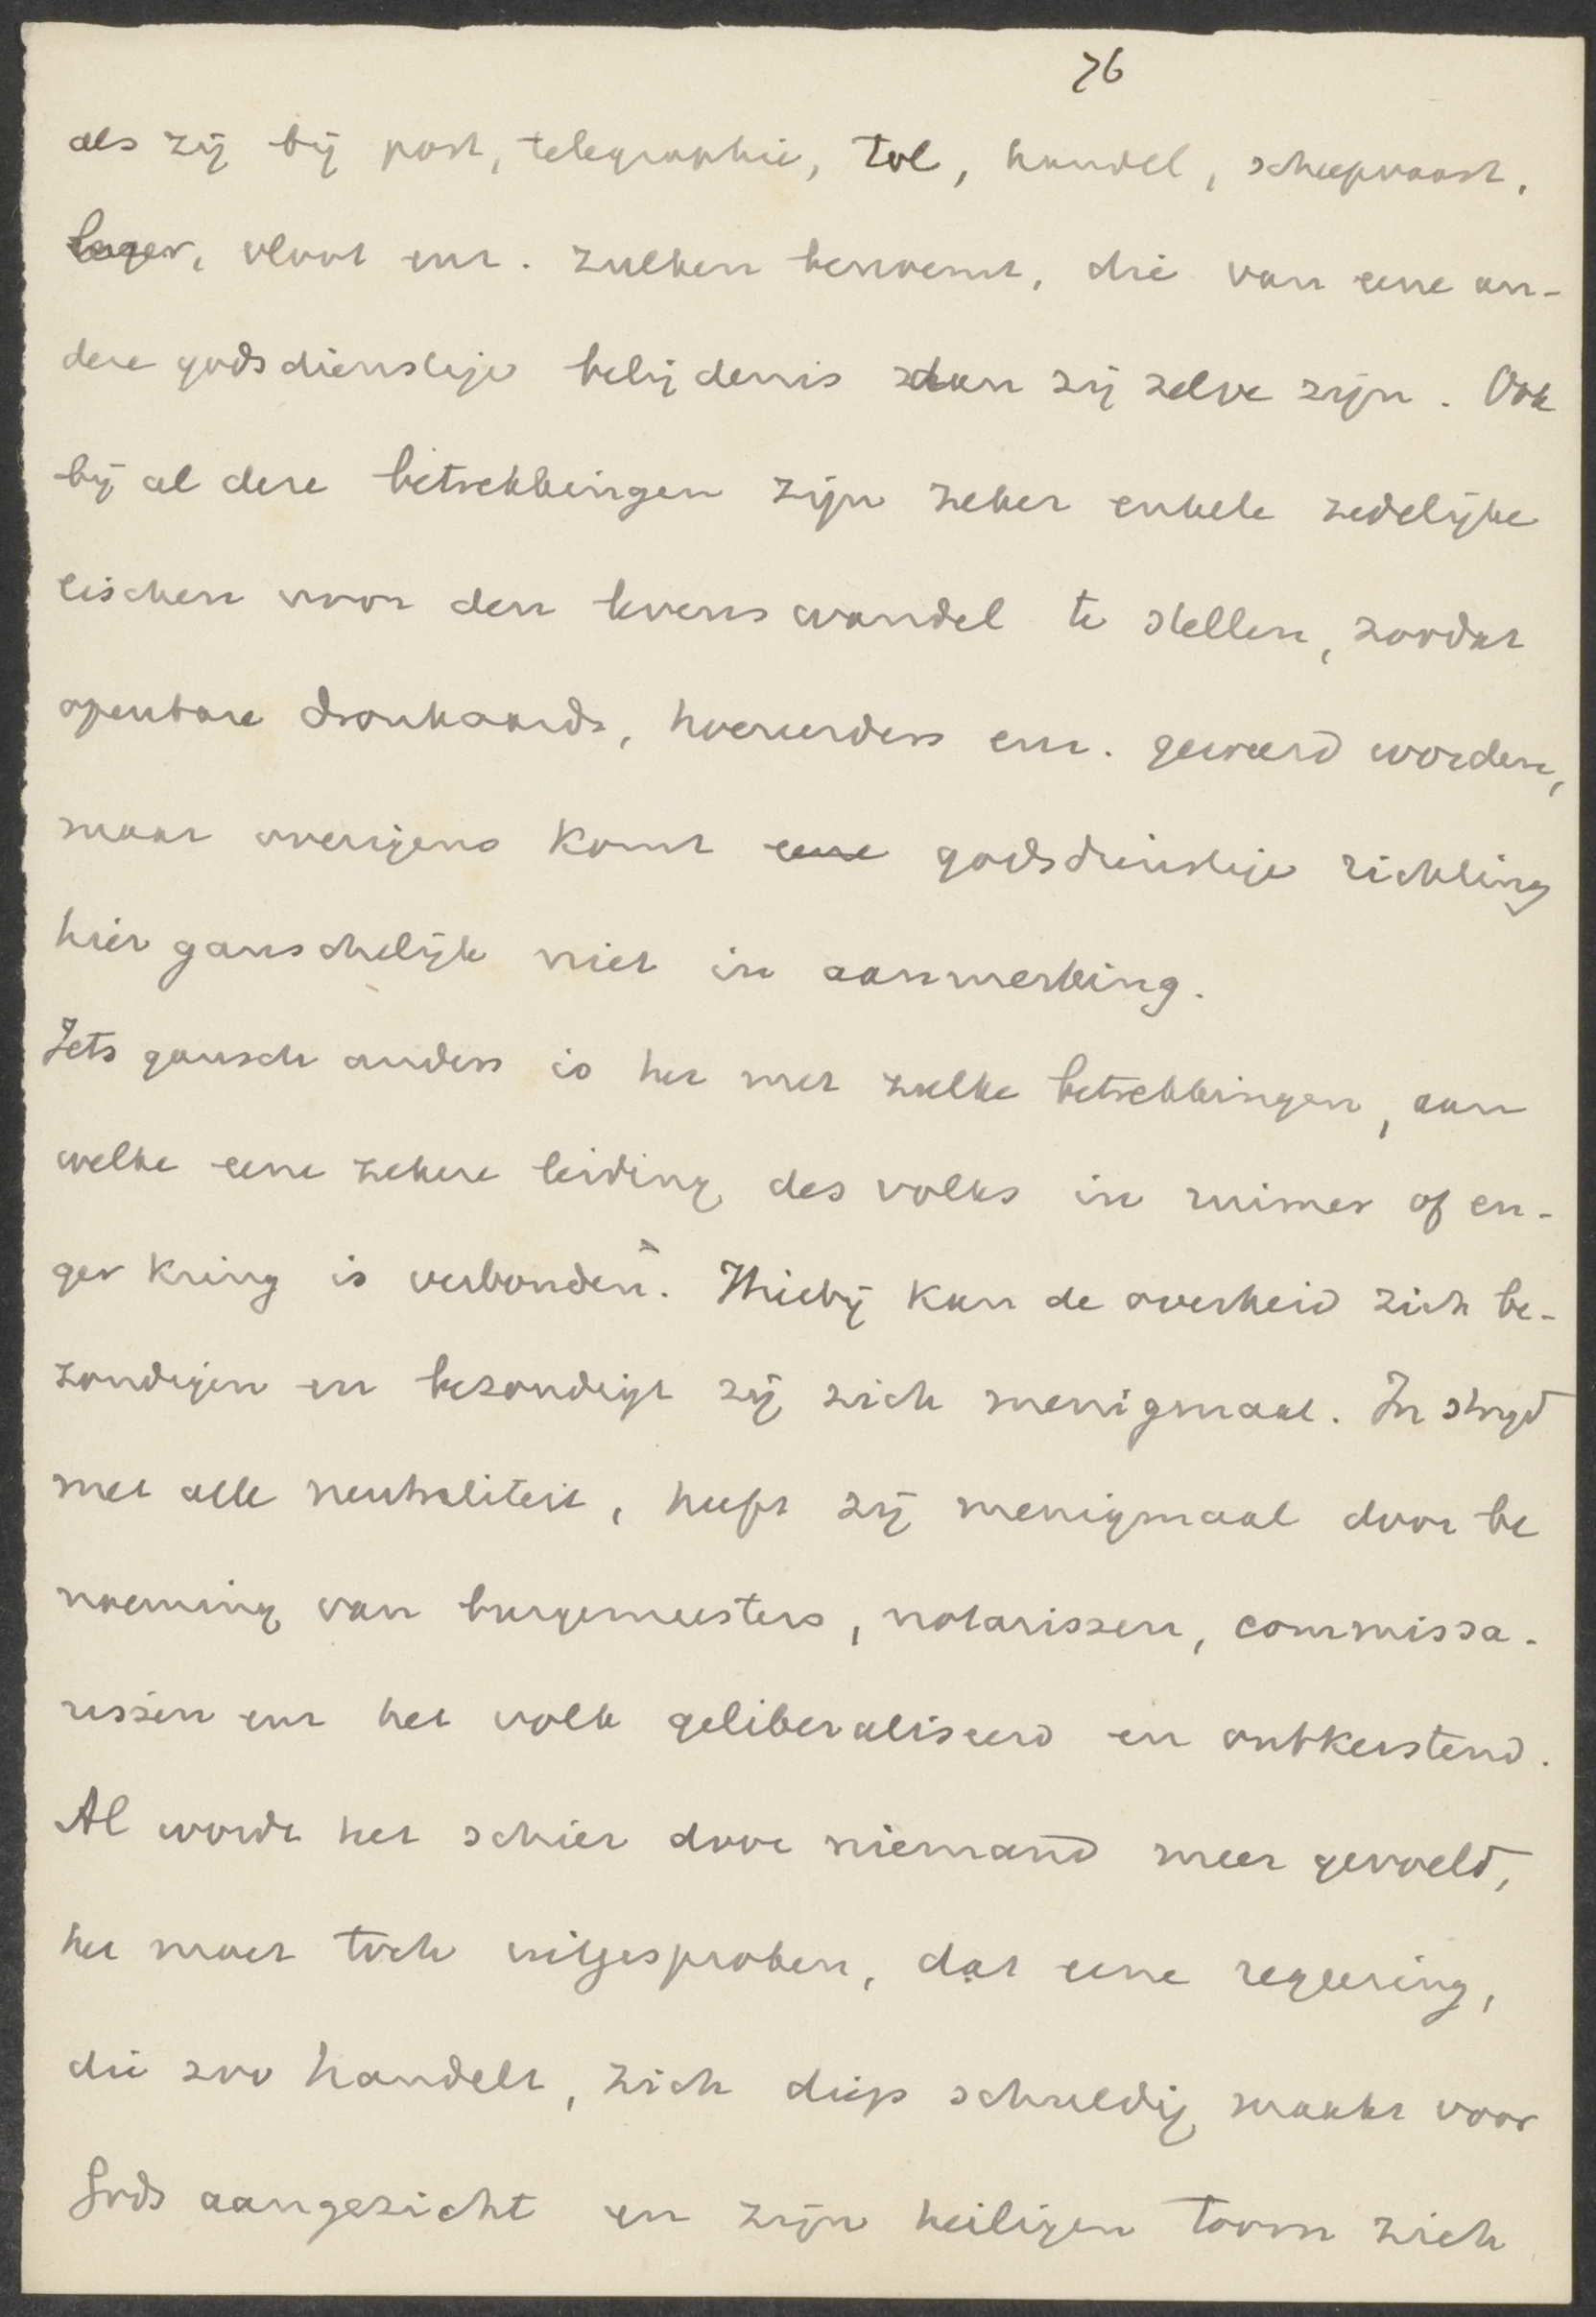 76
als zij bij post, telegraphie, tol, handel, scheepvaart,
leger, vloot enz. zulken benoemt, die van eene an-
dere godsdienstige belijdenis dan zij zelve zijn. Ook
bij al deze betrekkingen zijn zeker enkele zedelijke
eischen voor den levenswandel te stellen, zoodat
openbare dronkaards, hoereerders enz. geweerd worden,
maar overigens komt eene godsdienstige richting
hier ganschelijk niet in aanmerking.
Iets gansch anders is het met zulke betrekkingen, aan
welke eene zekere leiding des volks in ruimer of en-
ger kring is verbonden. Hierbij kan de overheid zich be-
zondigen en bezondigt zij zich menigmaal. In strijd
met alle neutraliteit, heeft zij menigmaal door be
noeming van burgemeesters, notarissen, commissa-
rissen enz het volk geliberaliseerd en ontkerstend.
Al wordt het schier door niemand meer gevoeld,
het moet toch uitgesproken, dat eene regeering,
die zoo handelt, zich diep schuldig maakt voor
Gods aangezicht en zijn heiligen toorn zich